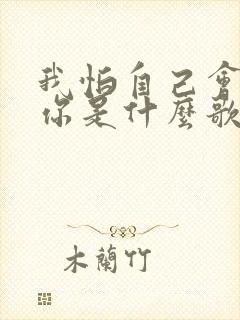 我怕自己會
你是什麼歌
木蘭竹